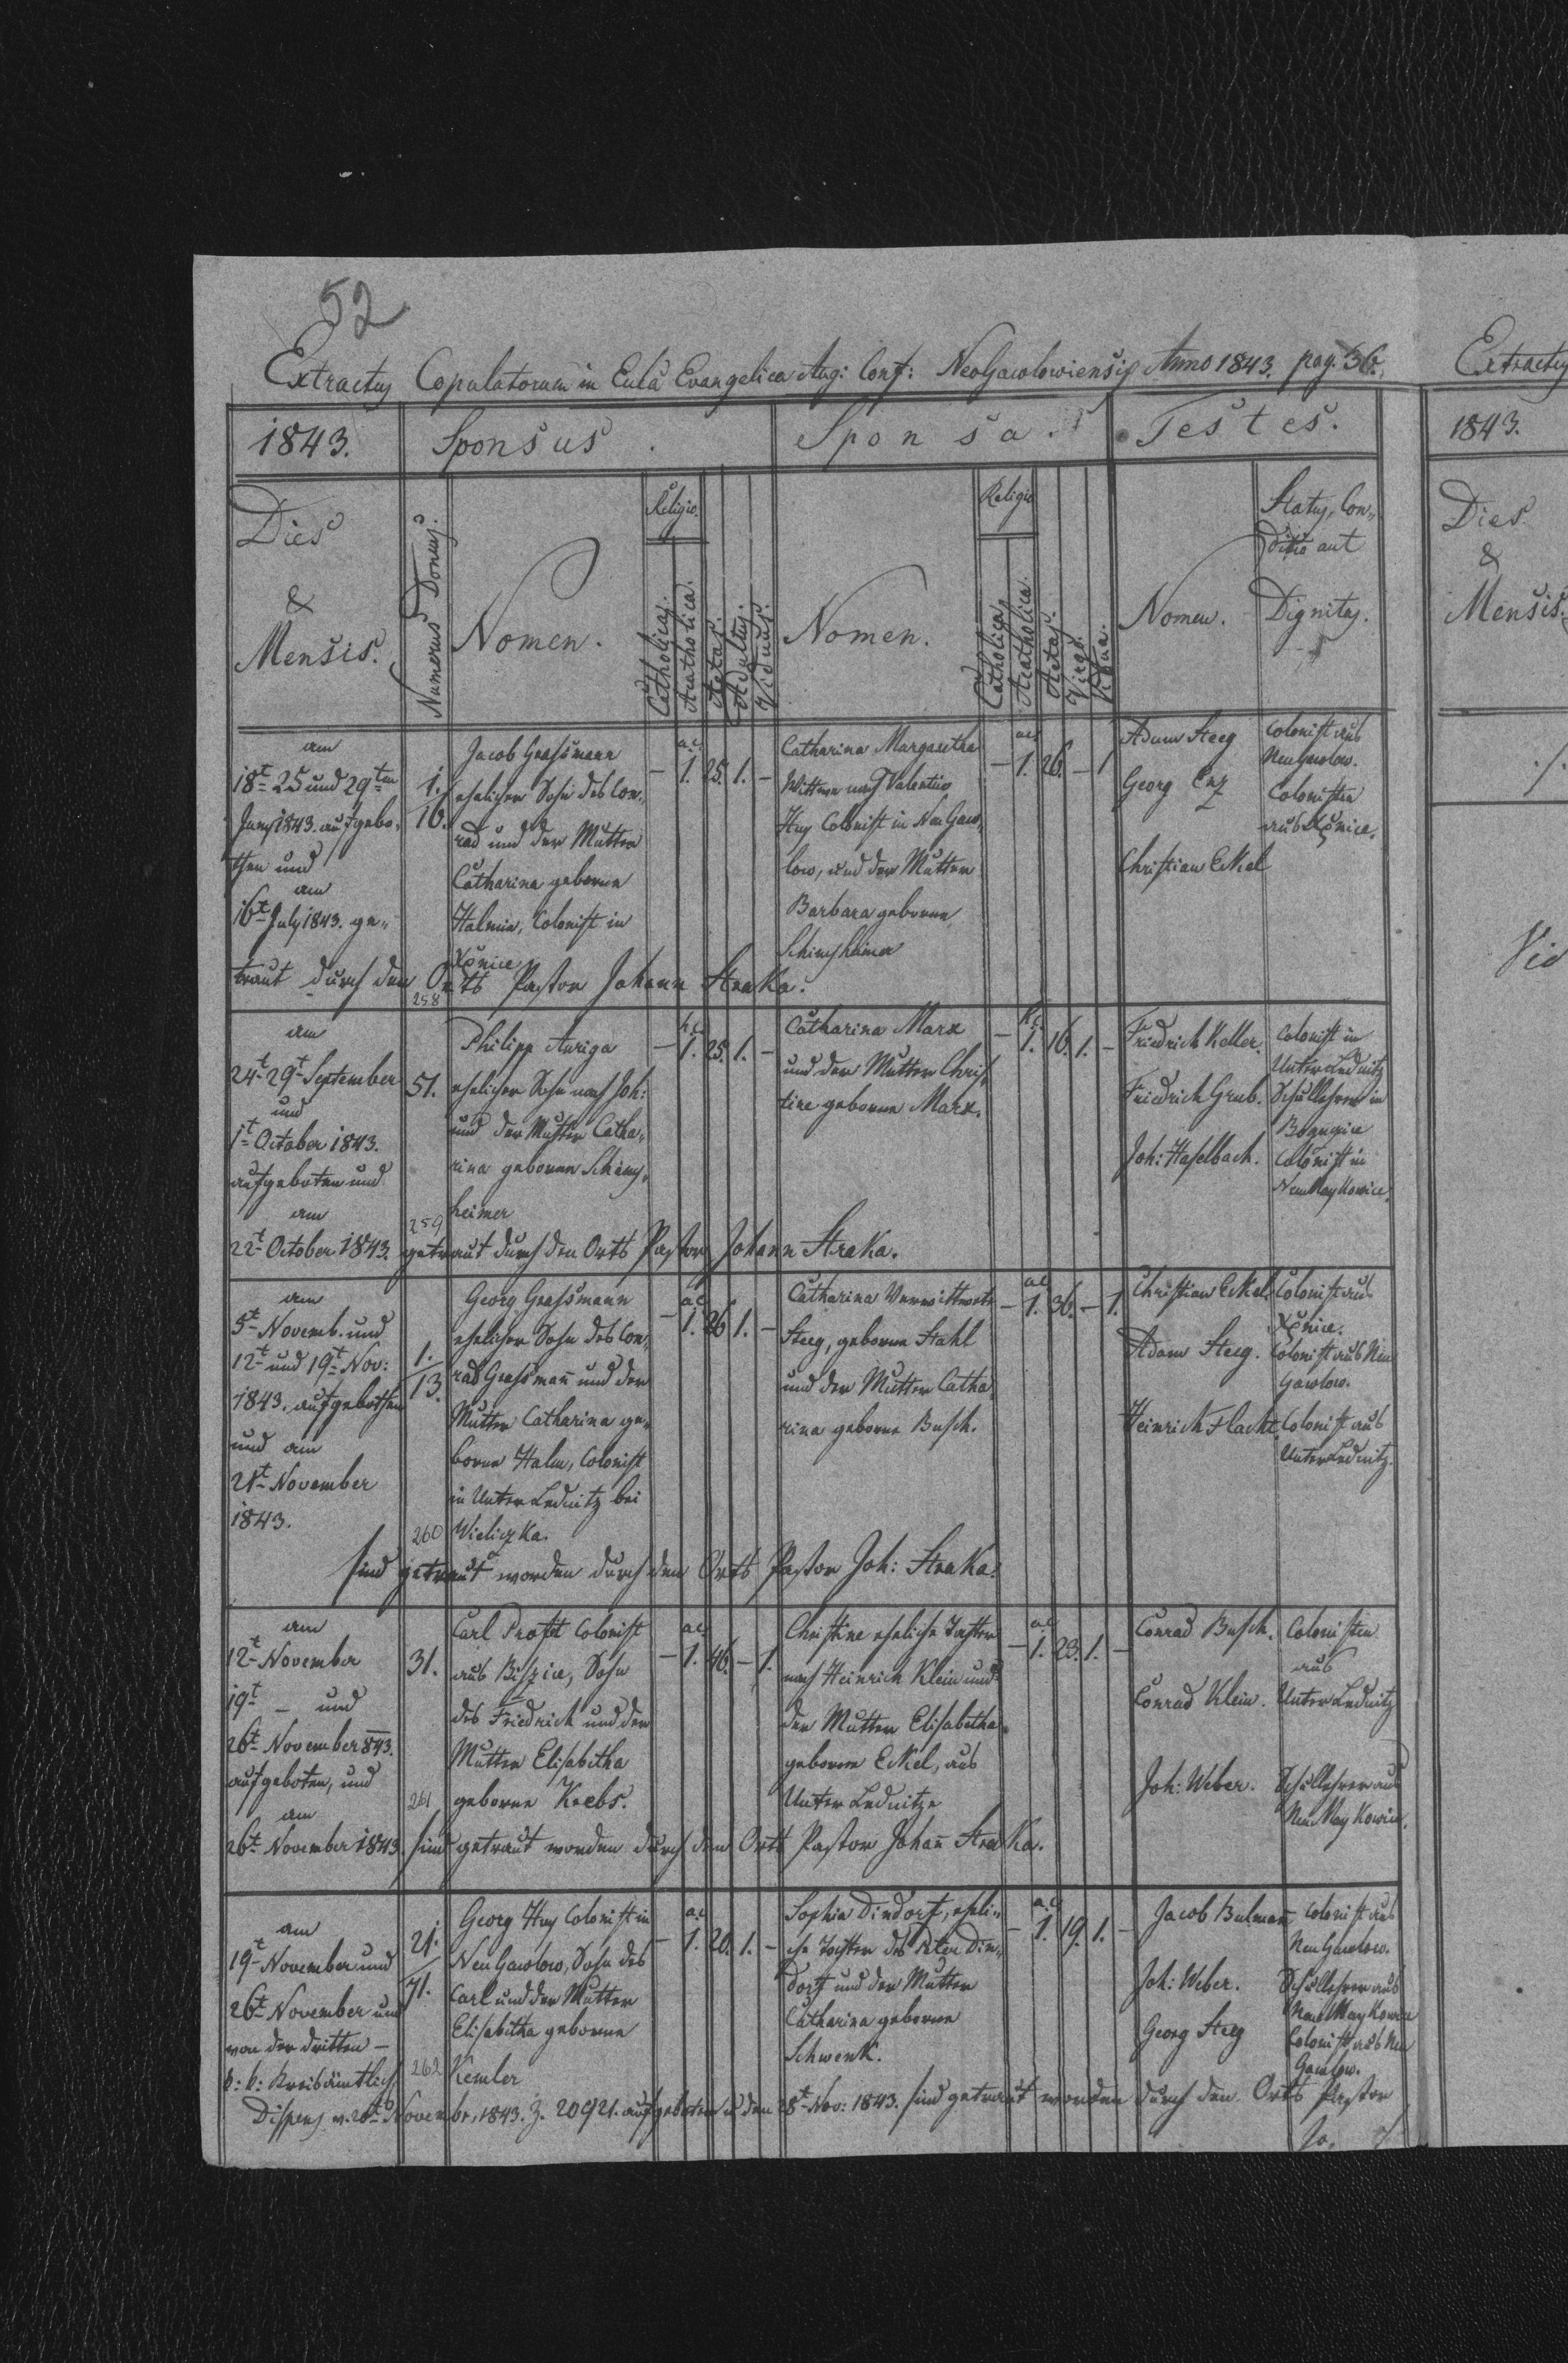 52
Extractus Copulatorum in Eccla Evangelica Aug: Conf: NeoGawlowiensis Anno 1843. pag. 36.
Extractus
1843. Sponsus. Sponsa. Testes.
1843.
Dies
&
Mensis.
Numerus Domus.
Nomen.
Religio.
Catholica.
Acatholica.
Aetas.
Adultus.
Viduus.
Nomen.
Religio
Catholica.
Acatholica.
Aetas.
Virgo.
Vidua.
Nomen.
Status, Con„
ditio aut
Dignitas.
Dies
&
Mensis.
am
18t 25 und 29ten
Juny 1843. aufgebo„
then und
am
16t July 1843. ge„
1.
16.
Jacob Grassmann
ehelicher Sohn des Con„
rad und der Mutter
Catharina geborne
Halmin, Colonist in
Xęnice
a.c.
– 1. 25. 1. –
Catharina Margaretha
Wittwe nach Valentin
Huy Colonist in NeuGaw„
low, und der Mutter
Barbara geborne
Schimsheimer
ac
– 1. 26. – 1
Adam Steeg
Georg Enz
Christian Eckel
Colonist aus
NeuGawlow.
Colonisten
aus Xęnice.
traut durch den Orts Pastor Johann Straka.
258
am
24t 29t September
und
1t October 1843.
aufgeboten und
am
51.
Philipp Auriga
ehelicher Sohn nach Joh:
und der Mutter Catha„
rina geborne Schims„
heimer
– 1. 25. 1. –
Catharina Marx
und der Mutter Chris„
tine geborne Marx.
– 1. 16. 1. –
Friedrich Keller.
Friedrich Grub.
Joh: Haselbach.
Colonist in
UnterLednitz
Schullehrer in
Bogucice
Colonist in
NeuMaykowice.
259
22t October 1843. getraut durch den Orts Pastor Johann Straka.
am
5t Novemb. und
12t und 19t Nov:
1843. aufgebothen
und am
21t November
1843.
1.
13.
Georg Grassmann
ehelicher Sohn des Con„
rad Grassmañ und der
Mutter Catharina ge„
borne Halm, Colonist
in Unter Lednitz bei
Wieliczka.
ac
– 1. 26 1. –
Catharina Verwittwete
Steeg, geborne Stahl
und der Mutter Catha
rina geborne Busch.
ac
– 1. 36. – 1.
Christian Eckel
Adam Steeg.
Heinrich Flacht.
Colonist aus
Xęnice.
Colonist aus Neu
Gawlow.
Colonist aus
UnterLednitz.
260
sind getraut worden durch den Orts Pastor Joh: Straka.
am
12t November
19t – und
26t November 843.
aufgeboten, und
am
31.
Carl Profit Colonist
aus Biszice, Sohn
des Friedrich und der
Mutter Elisabetha
geborne Krebs.
ac
– 1. 46. – 1.
Christine eheliche Tochter
nach Heinrich Klein und
der Mutter Elisabetha
geborne Eckel, aus
Unter Lednitze
ac
– 1. 23. 1. –
Conrad Busch.
Conrad Klein.
Joh: Weber.
Colonisten
aus
Unter Lednitz
Schullehrer aus
Neu Maykowice.
261
26t November 1843 sind getraut worden durch den Orts Pastor Johañ Straka.
am
19t November und
26t November und
von der dritten –
k: k: Kreisämtlich
21.
71.
Georg Huy Colonist in
NeuGawlow, Sohn des
Carl und der Mutter
Elisabetha geborne
Kemler
a.c.
– 1. 20. 1. –
Sophia Dindorf, eheli„
che Tochter des Peter Din„
dorf und der Mutter
Catharina geborne
Schwenk.
a.c.
– 1. 19. 1. –
Jacob Bulmañ
Joh: Weber.
Georg Steeg
Colonist aus
NeuGawlow.
Schullehrer aus
Neu Maykowice
Colonist aus Neu
Gawlow.
262
Dispens v. 26t Novembr, 1843. Z. 20921. aufgeboten u den 28t Nov: 1843. sind getraut worden durch den Orts Pastor